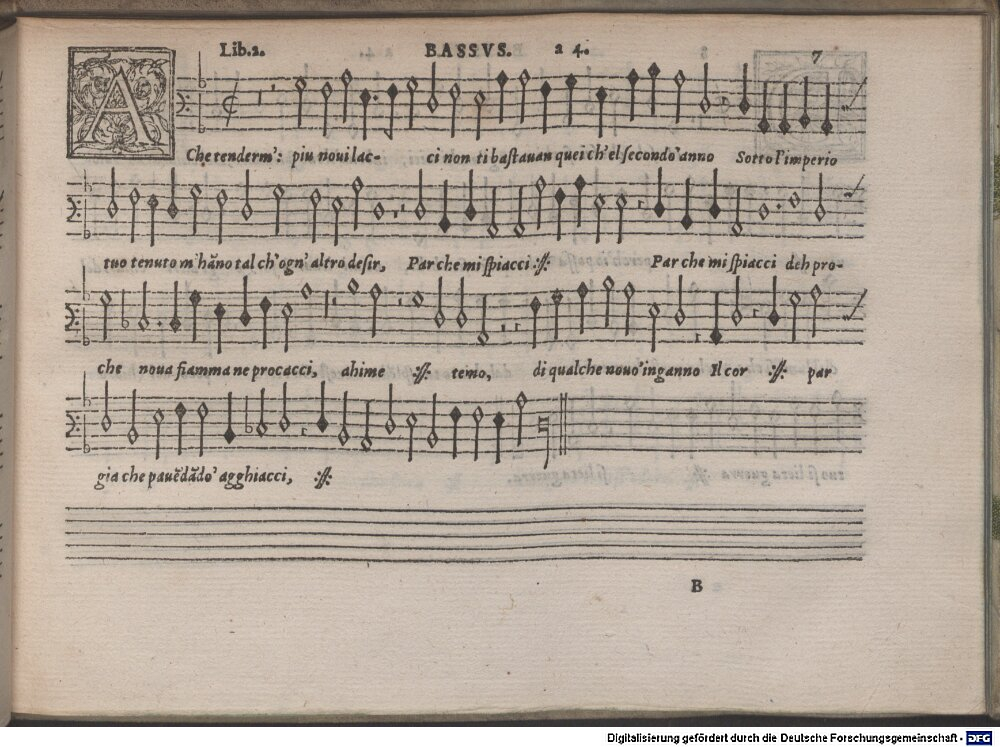 Lib.2. BASSVS. a 4. 7
A
Che tenderm': piu noui lac- ci non ti baſtauan quei ch'el ſecondo'anno Sotto l'imperio
tuo tenuto m'hãno tal ch'ogn'altro deſir, Par che mi ſpiacci :ſſ: Par che mi ſpiacci deh pro-
che noua fiamma ne procacci, ahime :ſſ: temo, di qualche nouo'inganno Il cor :ſſ: par
gia che pauẽdãdo' agghiacci, :ſſ:
B
Digitalisierung gefördert durch die Deutsche Forschungsgemeinschaft - DFG